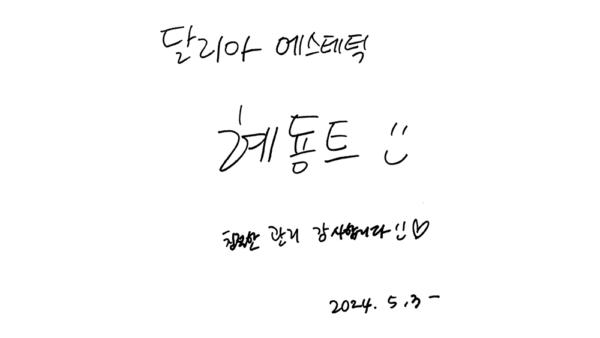 달리아 에스테틱
혜퉁트 :)
관리 감사합니다 :) ♡
2024. 5. 3 -